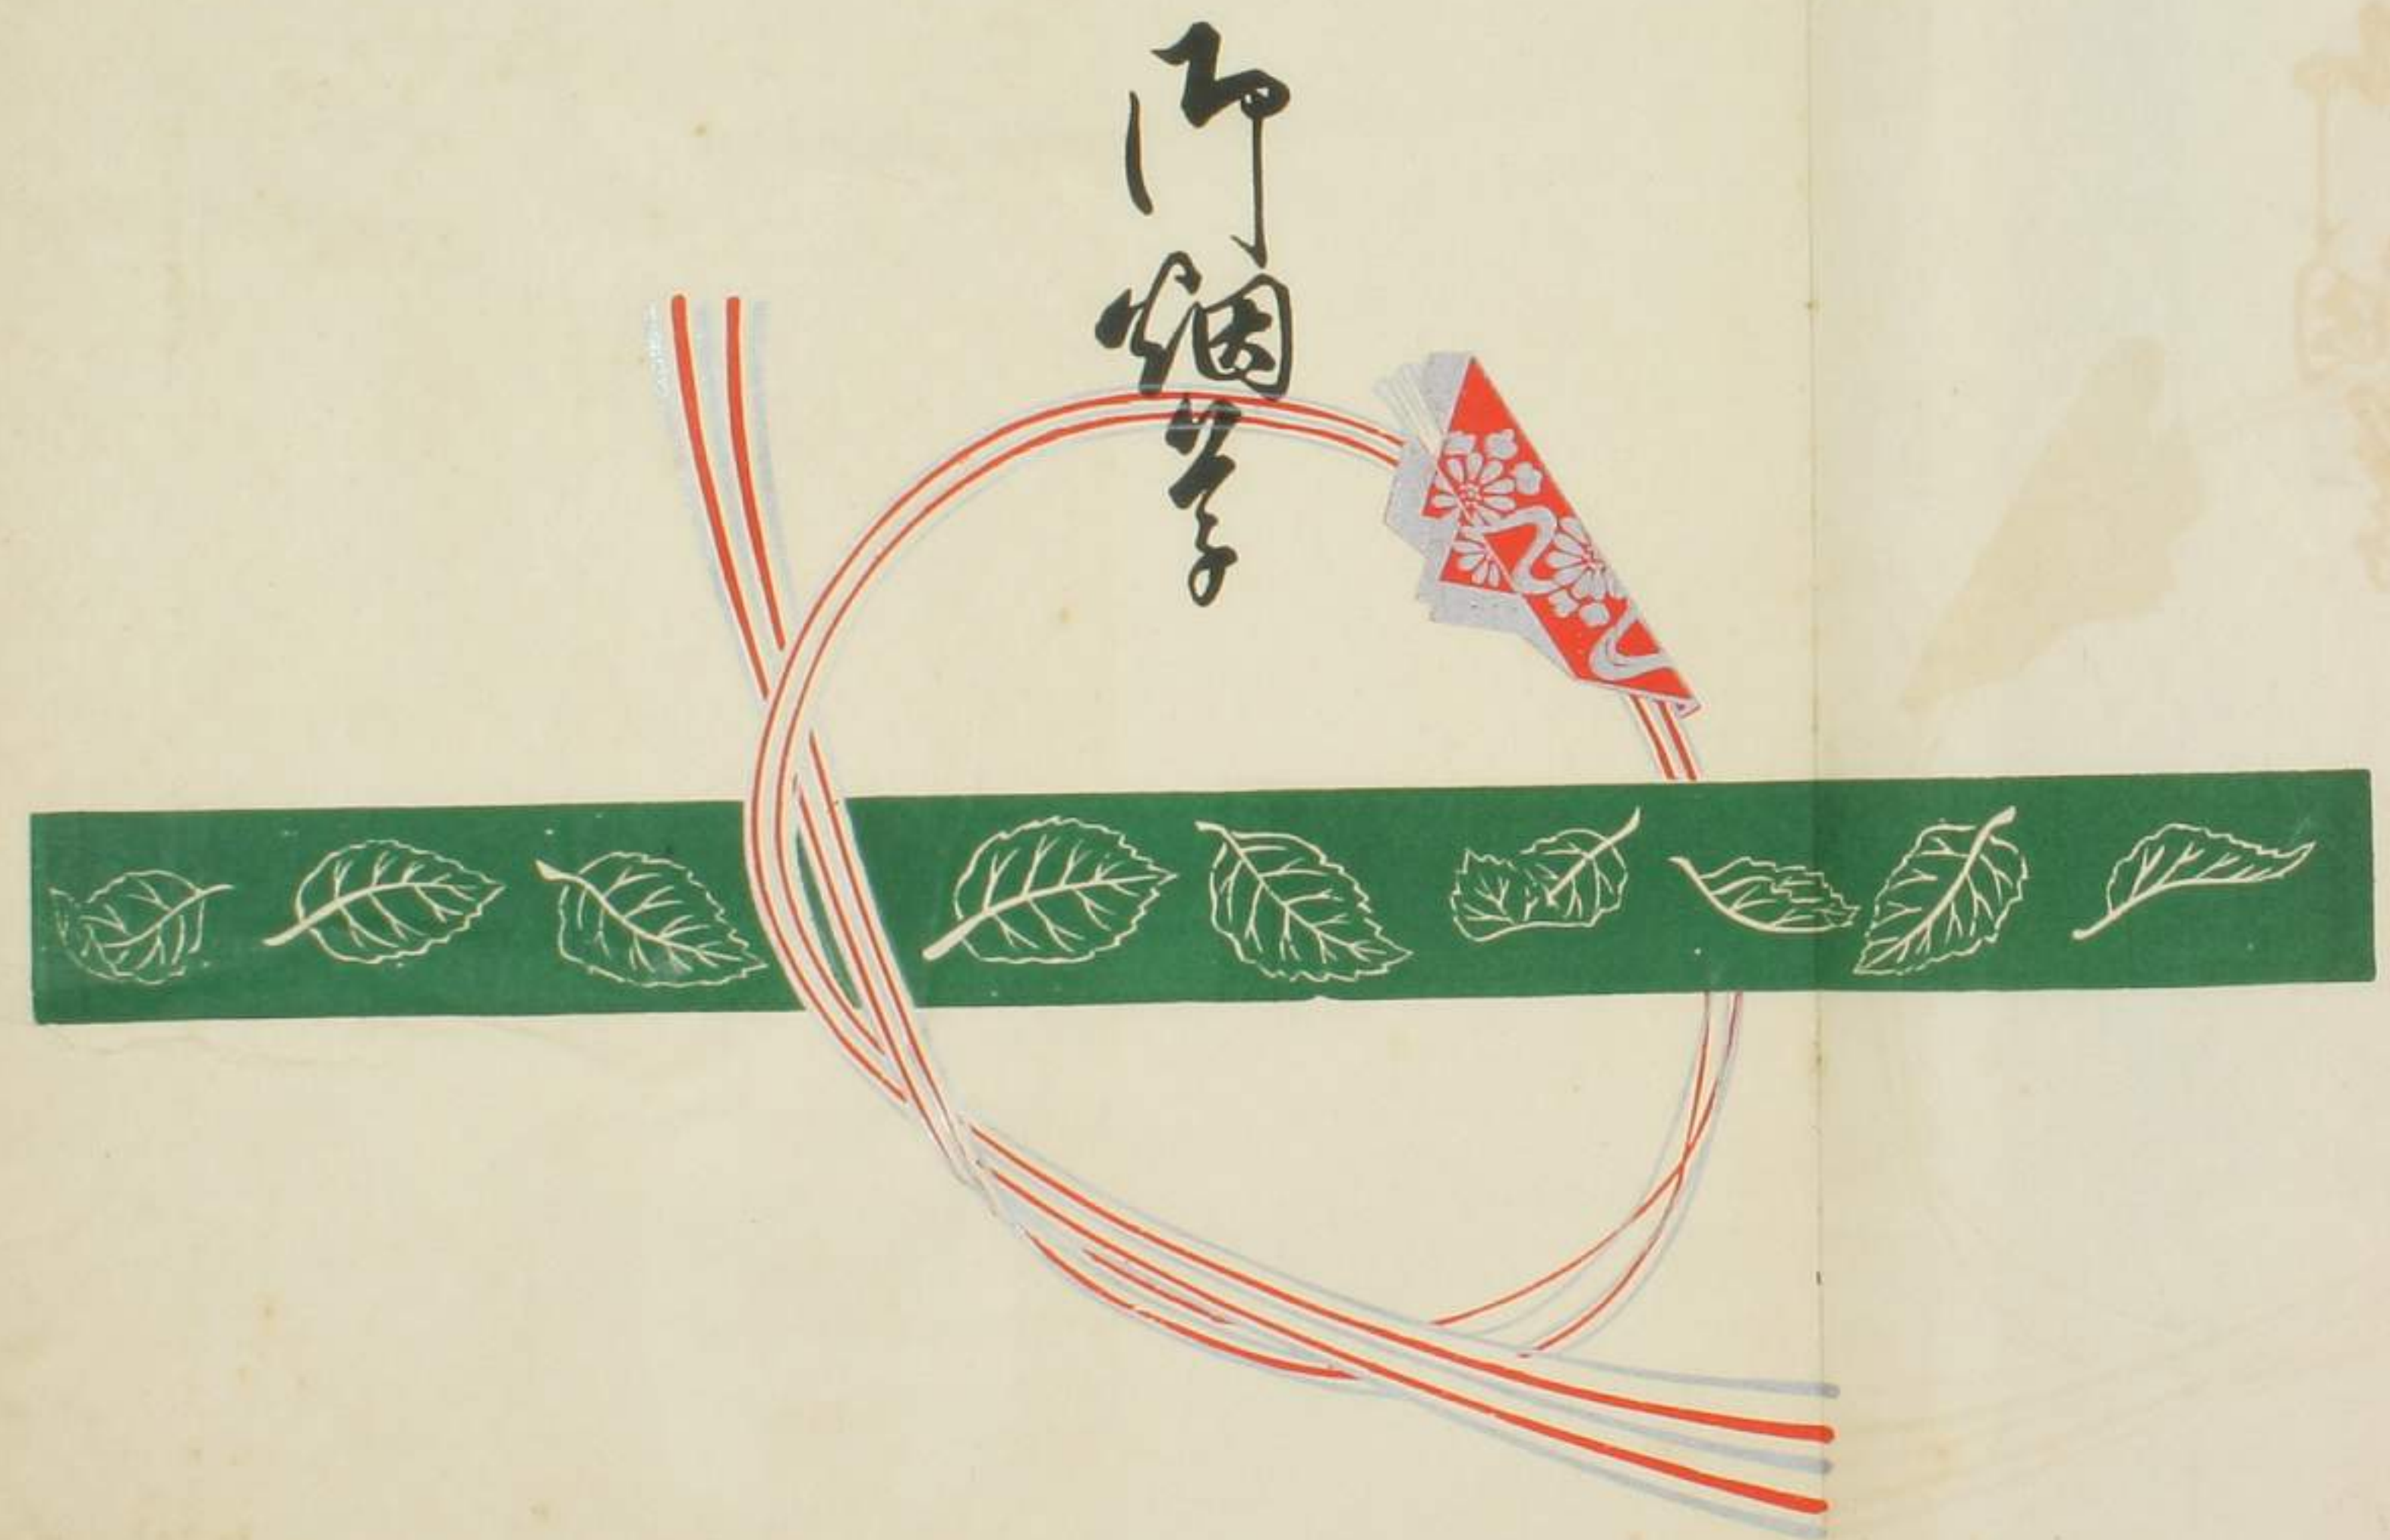 御烟草